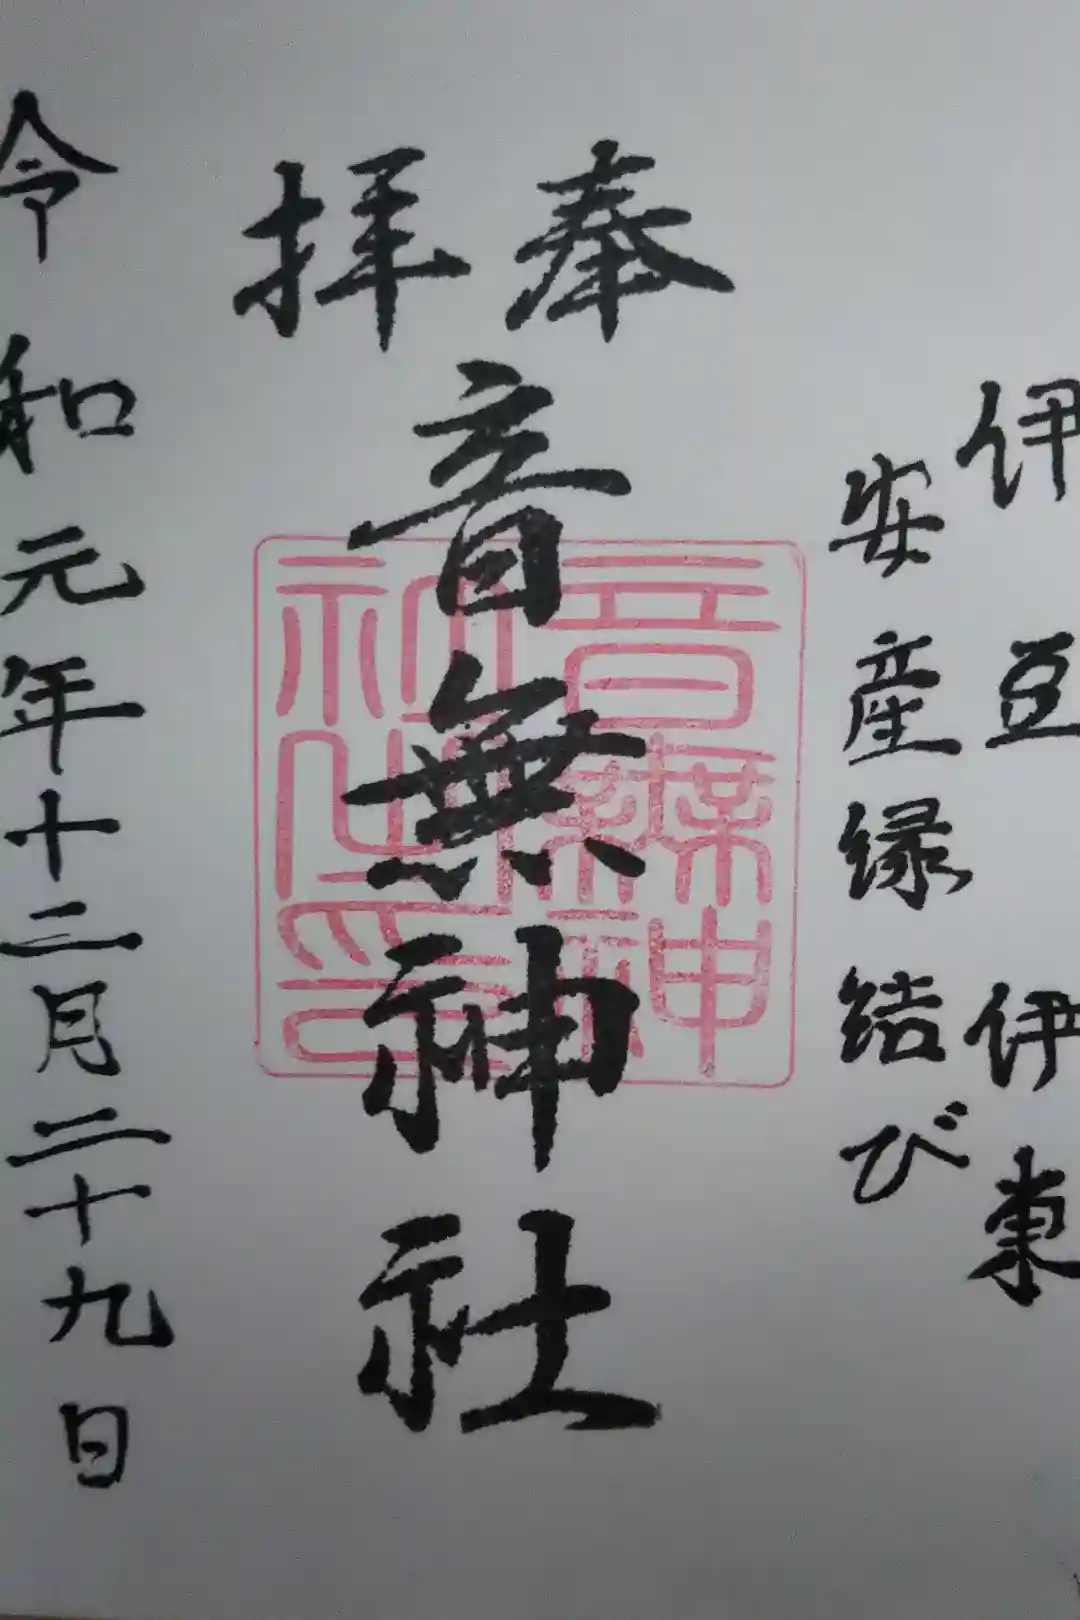 伊豆伊東
安産縁結び
奉拝
音無神社
音無神社之印
令和元年十二月二十九日